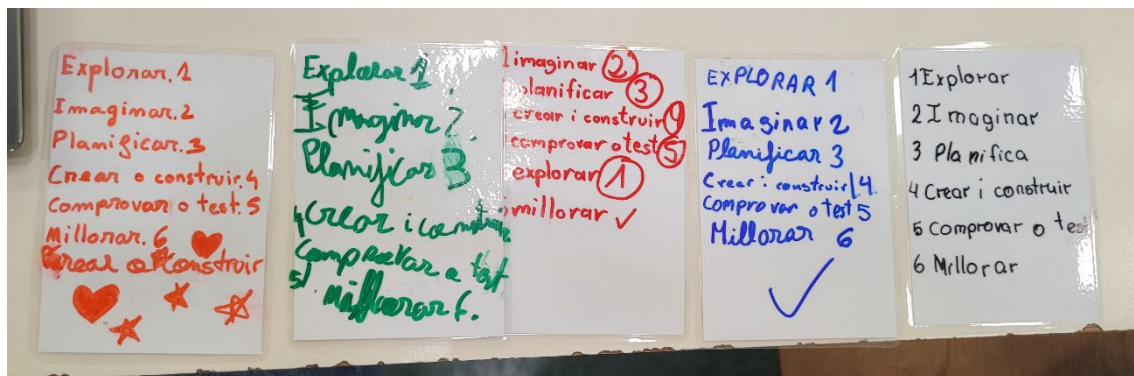 Explorar. 1
Imaginar. 2
Planificar. 3
Crear o construir. 4
Comprovar o test. 5
Millorar. 6
Crear o construir
Explorar 1.
Imaginar 2.
Planificar 3
4 Crear i construir
Comprovar o test
5
Millorar 6.
imaginar 2
planificar 3
crear i construir 4
comprovar o test 5
explorar 1
millorar ✓
EXPLORAR 1
Imaginar 2
Planificar 3
Crear i construir 4
Comprovar o test 5
Millorar 6
1 Explorar
2 Imaginar
3 Planifica
4 Crear i construir
5 Comprovar o test
6 Millorar